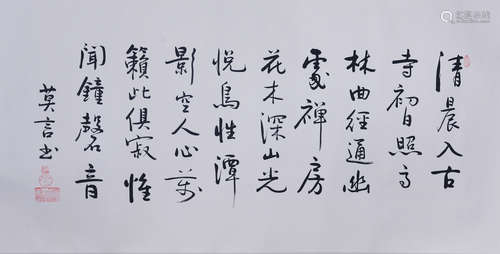 清晨入古
寺初日照高
林曲徑通幽
處禪房
花木深山光
悦鳥性潭
影空人心萬
籟此俱寂惟
聞鐘磬音
莫言书